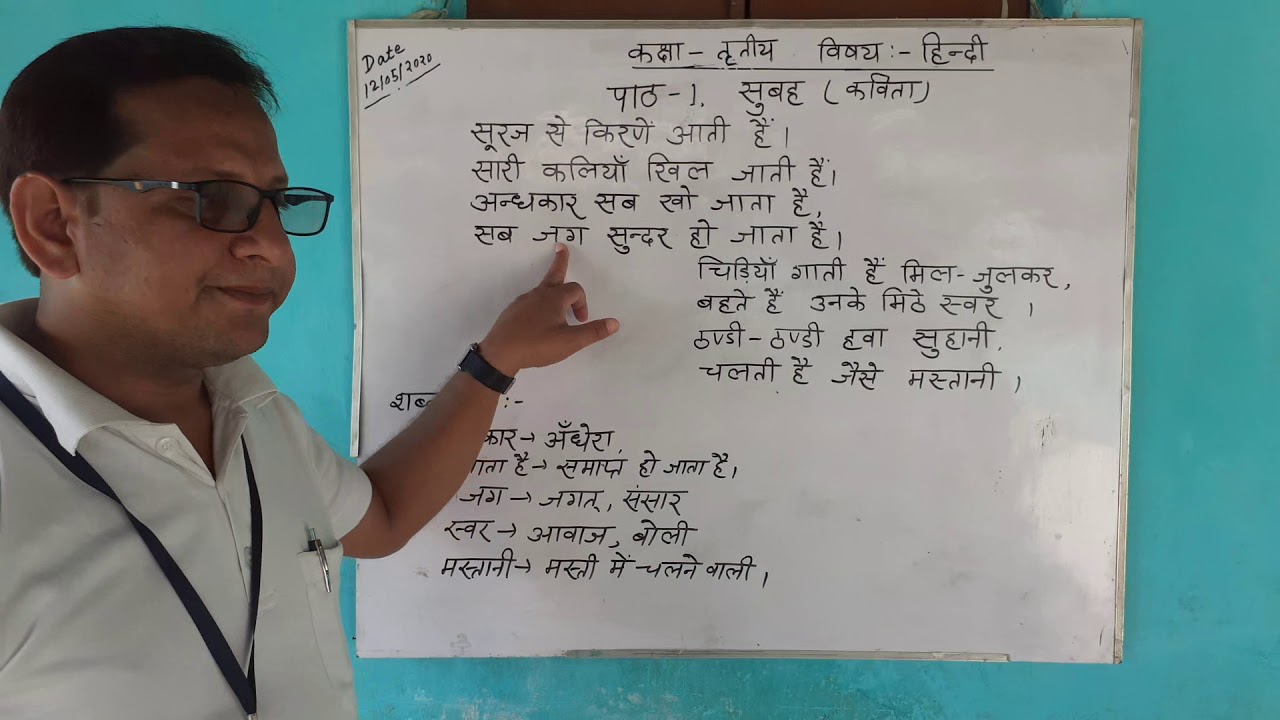 Date
12/05/2020
कक्षा - तृतीय विषय :- हिन्दी
पाठ -1. सुबह (कविता)
सूरज से किरणें आती हैं।
सारी कलियाँ खिल जाती हैं।
अन्धकार सब खो जाता है,
सब जग सुन्दर हो जाता है।
चिड़ियाँ गाती हैं मिल-जुलकर,
बहते हैं उनके मिठे स्वर ।
ठण्डी-ठण्डी हवा सुहानी,
चलती है जैसे मस्तानी ।
:-
कार → अँधेरा,
है → समाप्त हो जाता है।
जग → जगत्, संसार
स्वर → आवाज, बोली
मस्तानी → मस्ती में चलने वाली ।